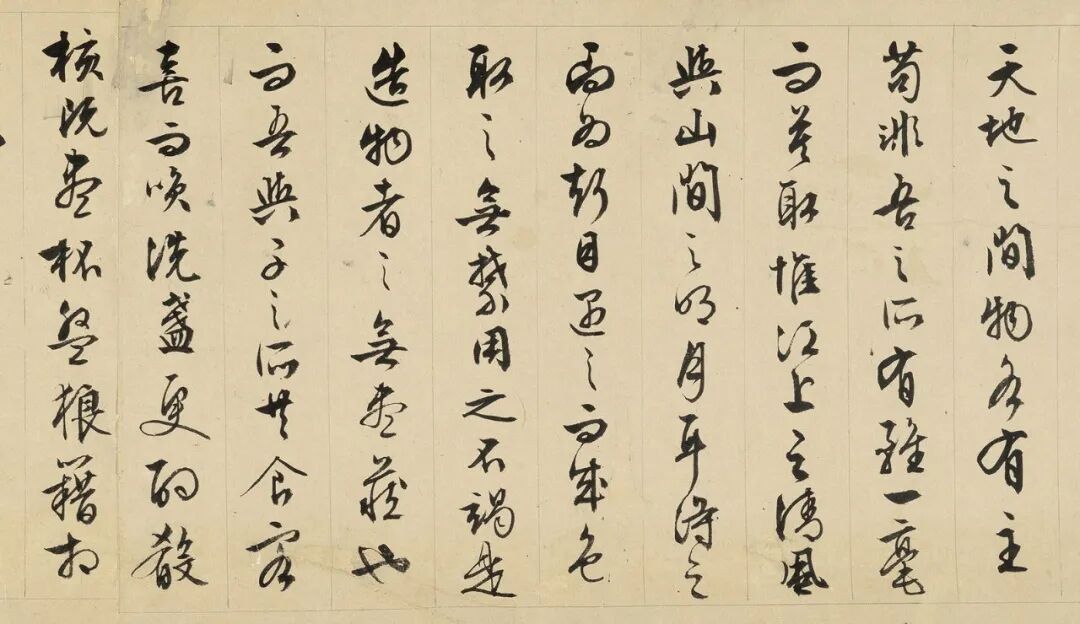 天地之間物各有主
苟非吾之所有雖一毫
而莫取惟江上之清風
與山間之明月耳得之
而為聲目遇之而成色
取之無禁用之不竭是
造物者之無盡藏也
而吾與子之所共食客
喜而咲洗盞更酌殽
核既盡杯盤狼籍相